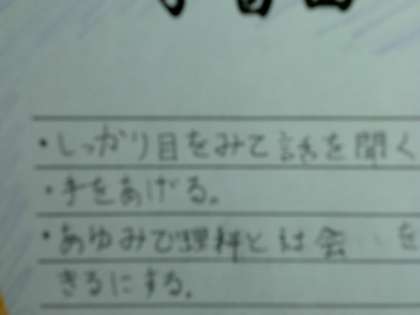 ・しっかり目をみて話を聞く
・手をあげる。
・あゆみで理科と社会を
きるにする。